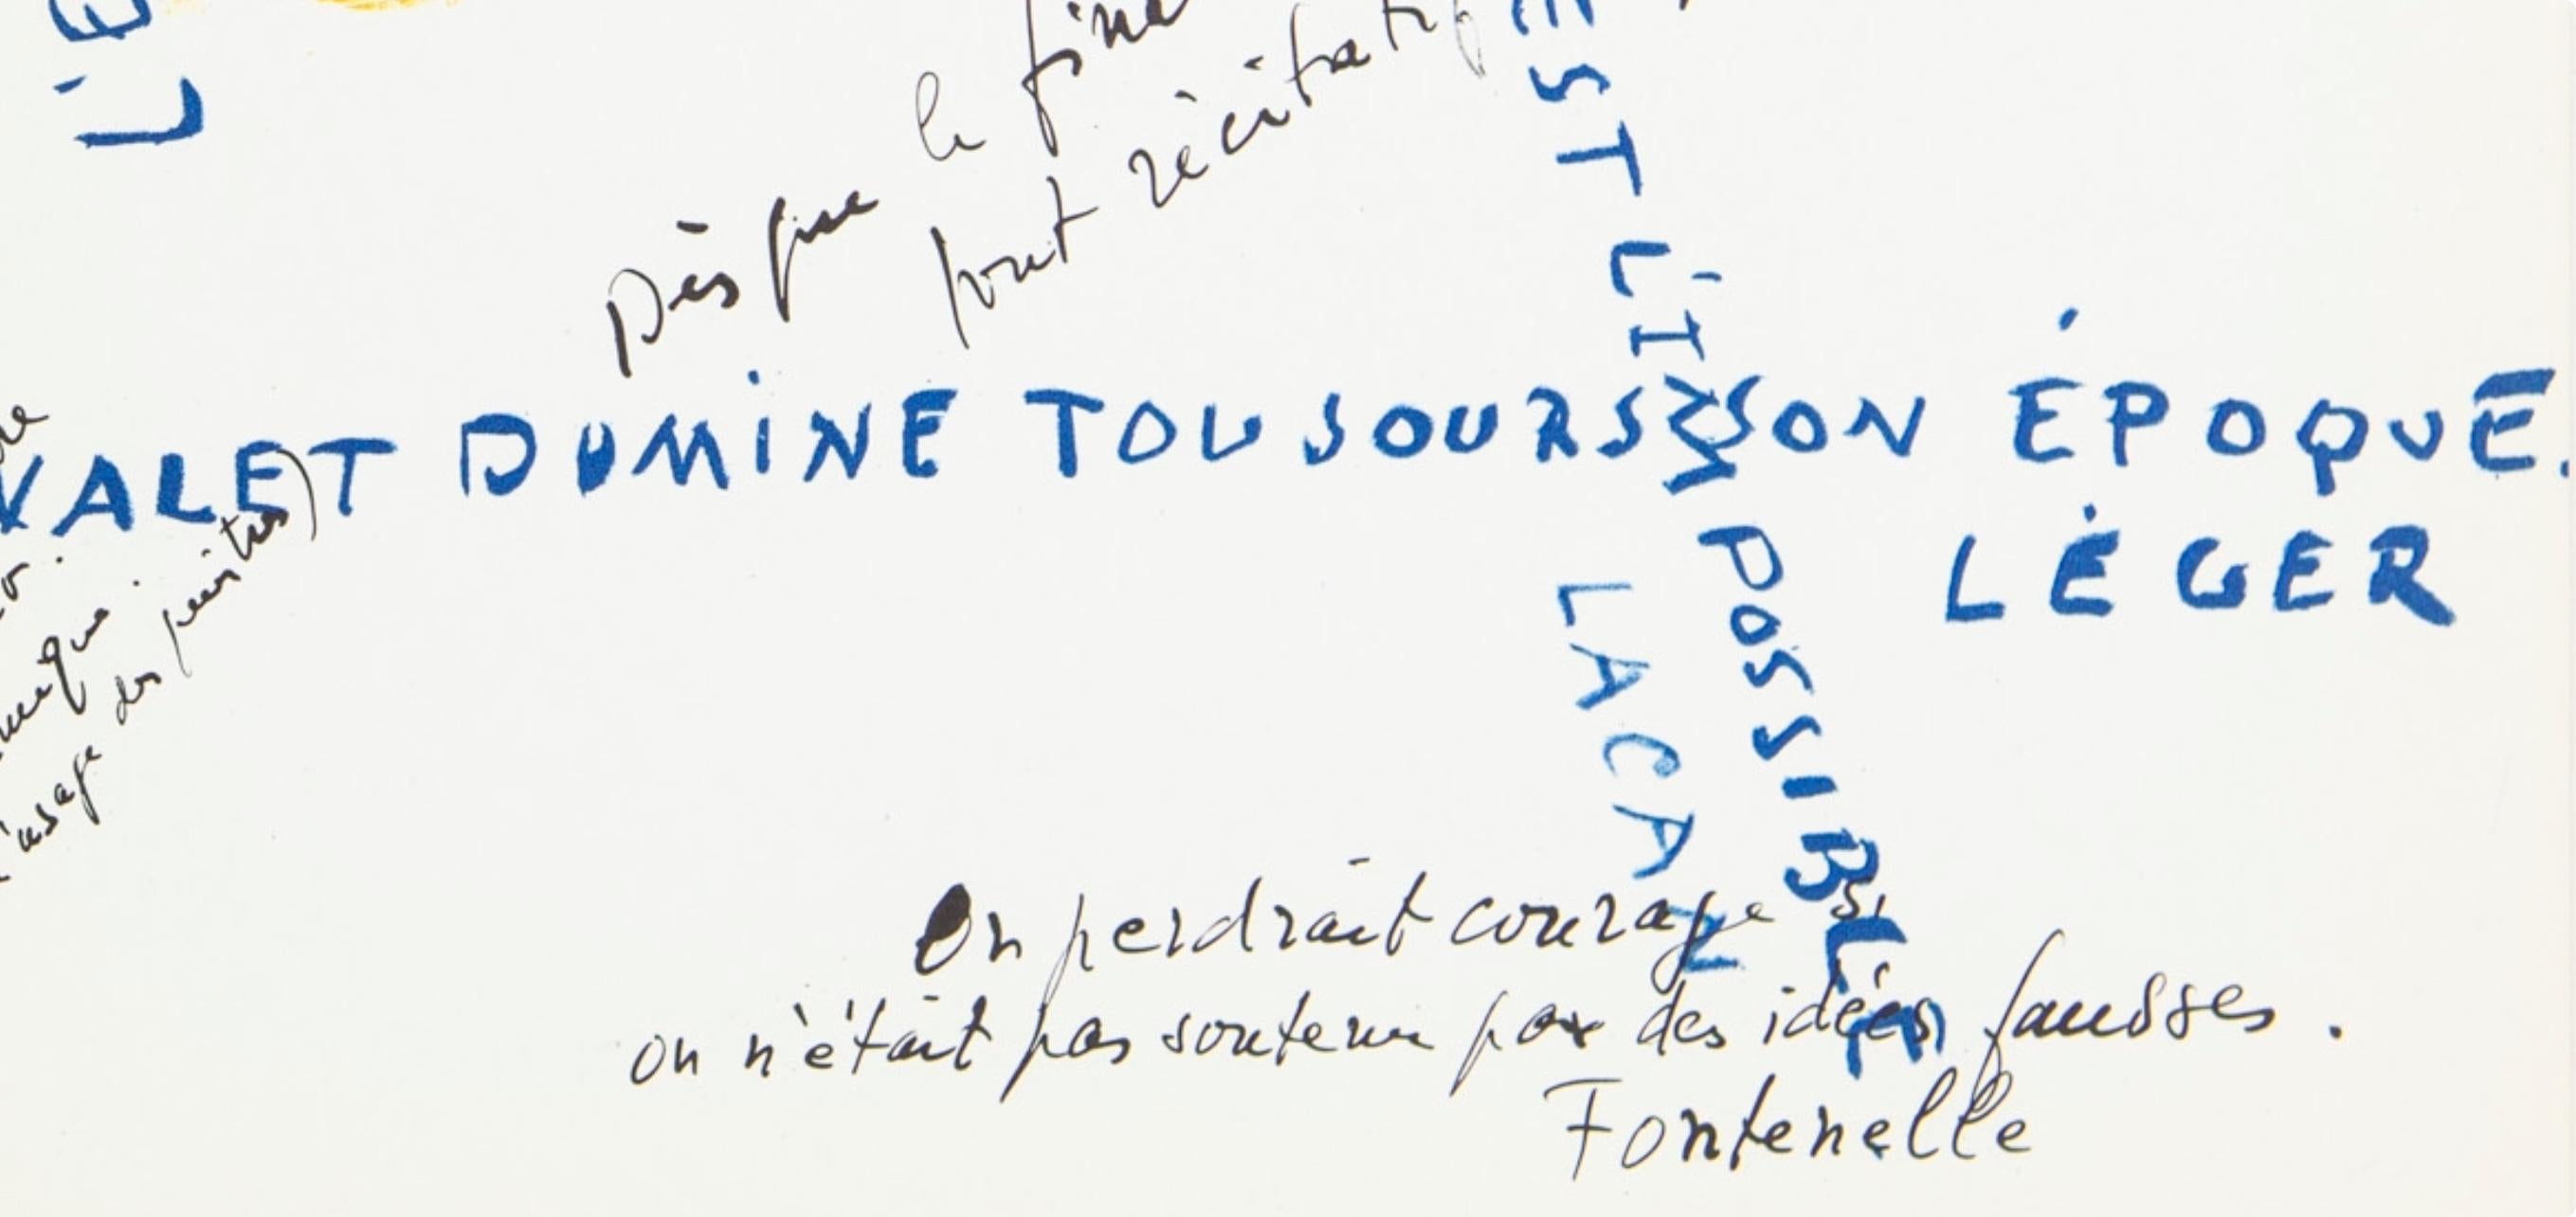 L'
Dès que le
sont récitatif
EST L'IMPOSSIBLE
LACAN
VALET DOMINE TOUJOURS SON ÉPOQUE.
LÉGER
l'usage des peintres)
On perdrait courage si
on n'était pas soutenu par des idées fausses.
Fontenelle